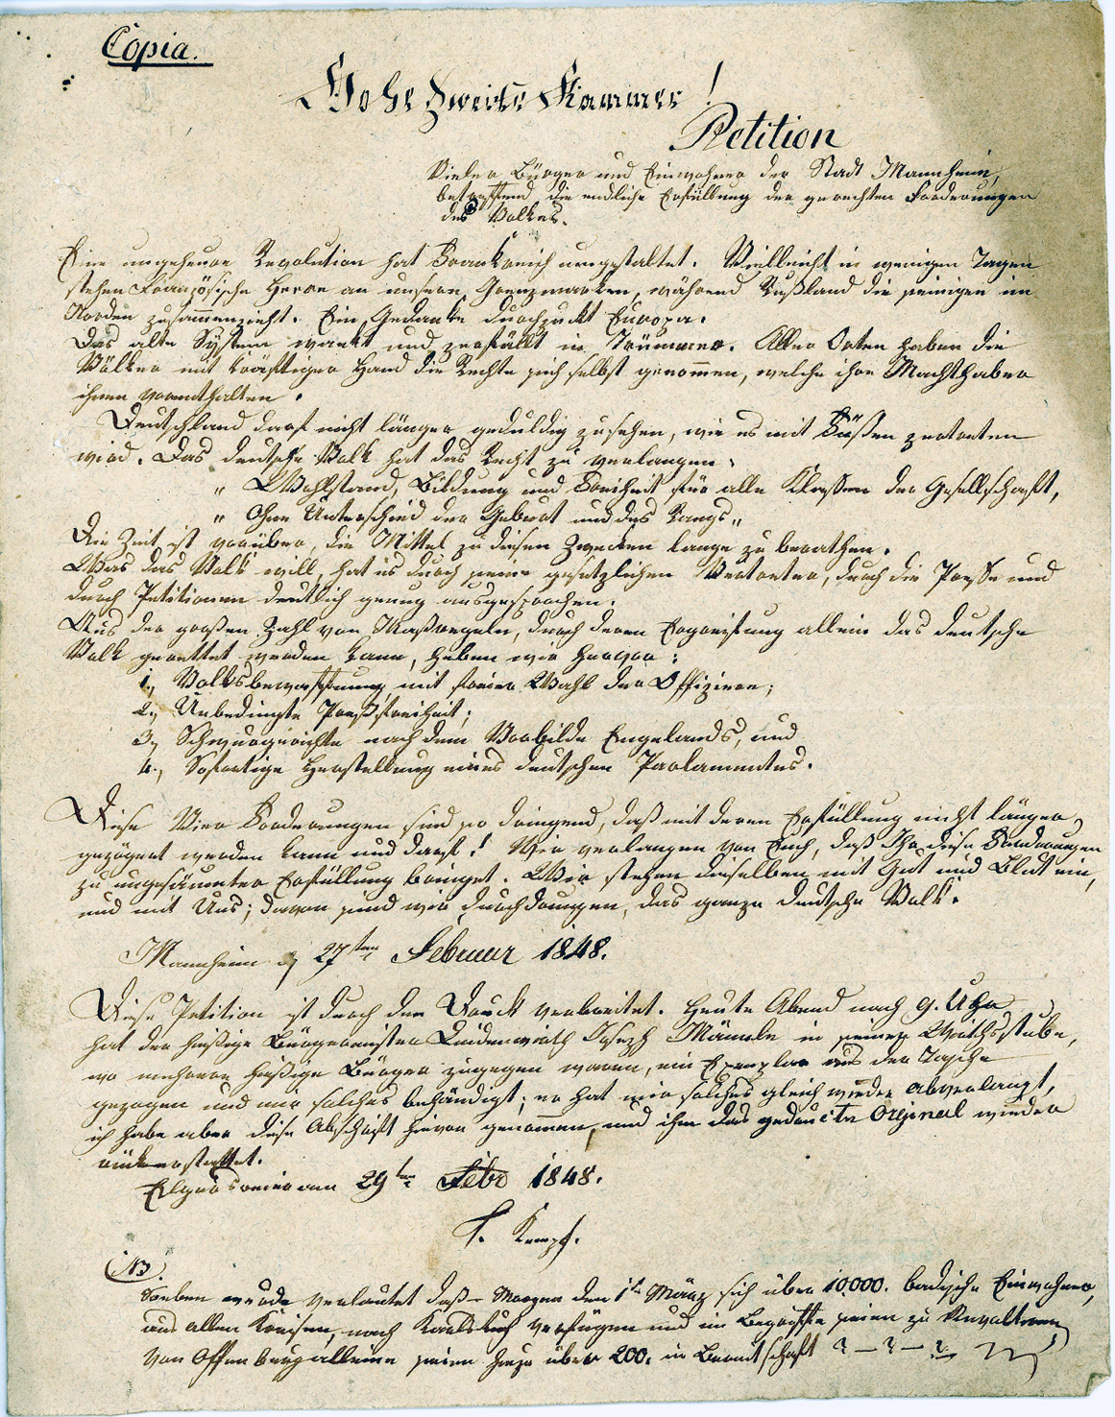 Copia.
Hohe Zweite Kammer!
Petition
Vieler Bürger und Einwohner der Stadt Mannheim,
betreffend die endliche Erfüllung der gerechten Forderungen
des Volkes.
Eine ungeheure Revolution hat Frankreich umgestaltet. Vielleicht in wenigen Tagen
stehen Französische Heere an unsern Grenzmarken, während Rußland die seinigen im
Norden zusammenzieht. Ein Gedanke durchzuckt Europa.
Das alte System wankt und zerfällt in Trümmer. Aller Orten haben die
Völker mit kräftiger Hand die Rechte sich selbst genommen, welche ihre Machthaber
ihnen vorenthalten.
Deutschland darf nicht länger geduldig zusehen, wie es mit Füßen zertreten
wird. Das deutsche Volk hat das Recht zu verlangen:
„ Wohlstand, Bildung und Freiheit für alle Klassen der Gesellschaft,
„ Ohne Unterschied der Geburt und des Rangs„
Die Zeit ist vorüber, die Mittel zu diesen Zwecken lange zu berathen.
Was das Volk will, hat es durch seine gesetzlichen Vertreter, durch die Presse und
durch Petitionen deutlich genug ausgesprochen.
Aus der großen Zahl von Maßregeln, durch deren Ergreifung allein das deutsche
Volk gerettet werden kann, heben wir hervor:
1., Volksbewaffnung mit freier Wahl der Offiziere;
2., Unbedingte Preßfreiheit;
3., Schwurgerichte nach dem Vorbilde Engelands, und
4., Sofortige Herstellung eines deutschen Parlamentes.
Diese Vier Forderungen sind so dringend, daß mit deren Erfüllung nicht länger
gezögert werden kann und darf! Wir verlangen von Euch, daß Ihr diese Forderungen
zu ungesäumter Erfüllung bringet. Wir stehen dieselben mit Gut und Blut ein,
und mit Uns; davon sind wir durchdrungen, das ganze deutsche Volk.
Mannheim d 27ten Februar 1848.
Diese Petition ist durch den Druck verbreitet. Heute Abend nach 9. Uhr
hat der hiesige Bürgermeister Lindenwirth Joseph Männle in seiner Wirthsstube,
wo mehrere hiesige Bürger zugegen waren, ein Exemplar aus der Tasche
gezogen und mir solches behändigt; er hat mir solches gleich wieder abverlangt,
ich habe aber diese Abschrift hievon genommen, und ihm das gedruckte Orginal wieder
rückerstattet.
29ten Febr 1848.
F. Kempf.
NB.
Soeben wurde verlautet daß Morgen den 1ten März sich über 10,000. badische Einwohner,
aus allen Kreisen, nach Karlsruh verfügen und im Begriffe seien zu
Von Offenburg alleine seien hiezu über 200. in Bereitschaft ? — ? — ?